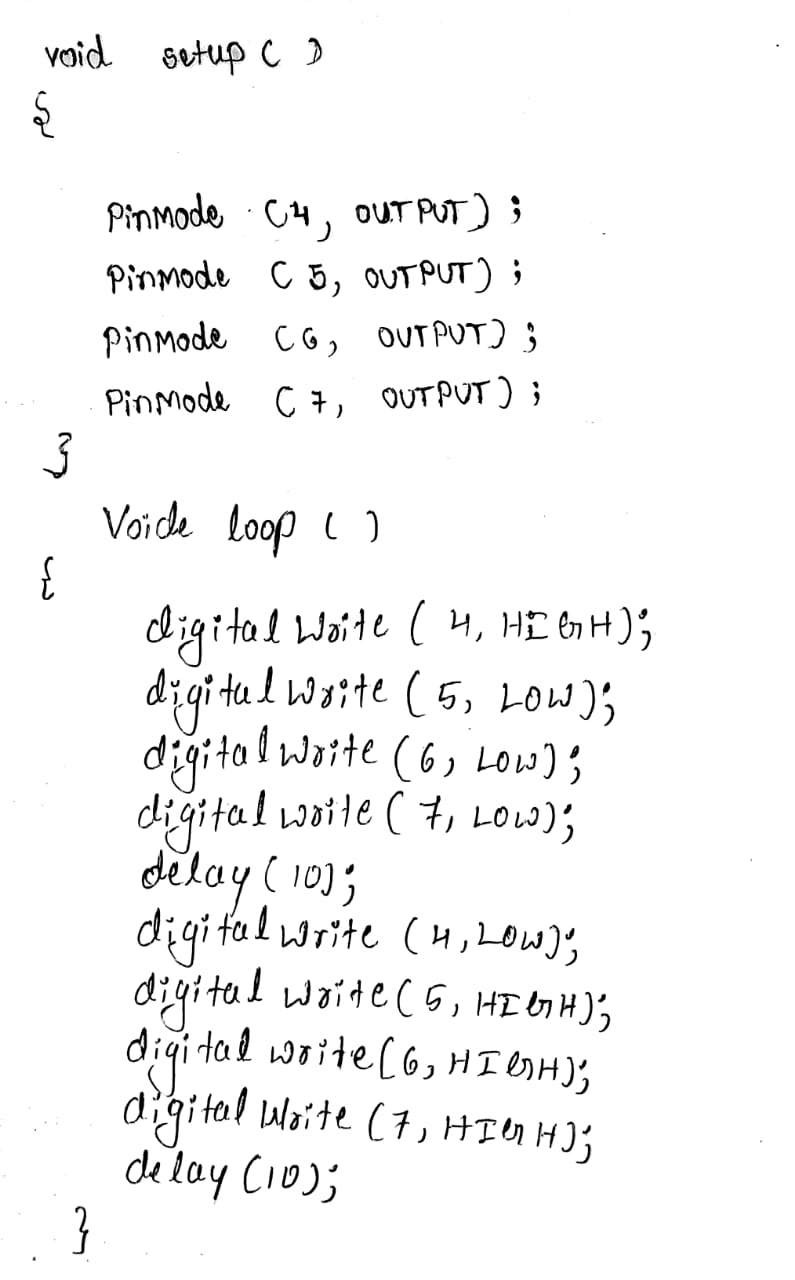 void setup ( )
{
PinMode (4, OUTPUT) ;
PinMode ( 5, OUTPUT) ;
PinMode (6, OUTPUT) ;
PinMode ( 7, OUTPUT) ;
}
Voide loop ( )
{
digital Write ( 4, HIGH);
digital Write ( 5, LOW);
digital Write (6, LOW);
digital write ( 7, LOW);
delay (10);
digital write (4, LOW);
digital Write (5, HIGH);
digital write (6, HIGH);
digital Write (7, HIGH);
delay (10);
}